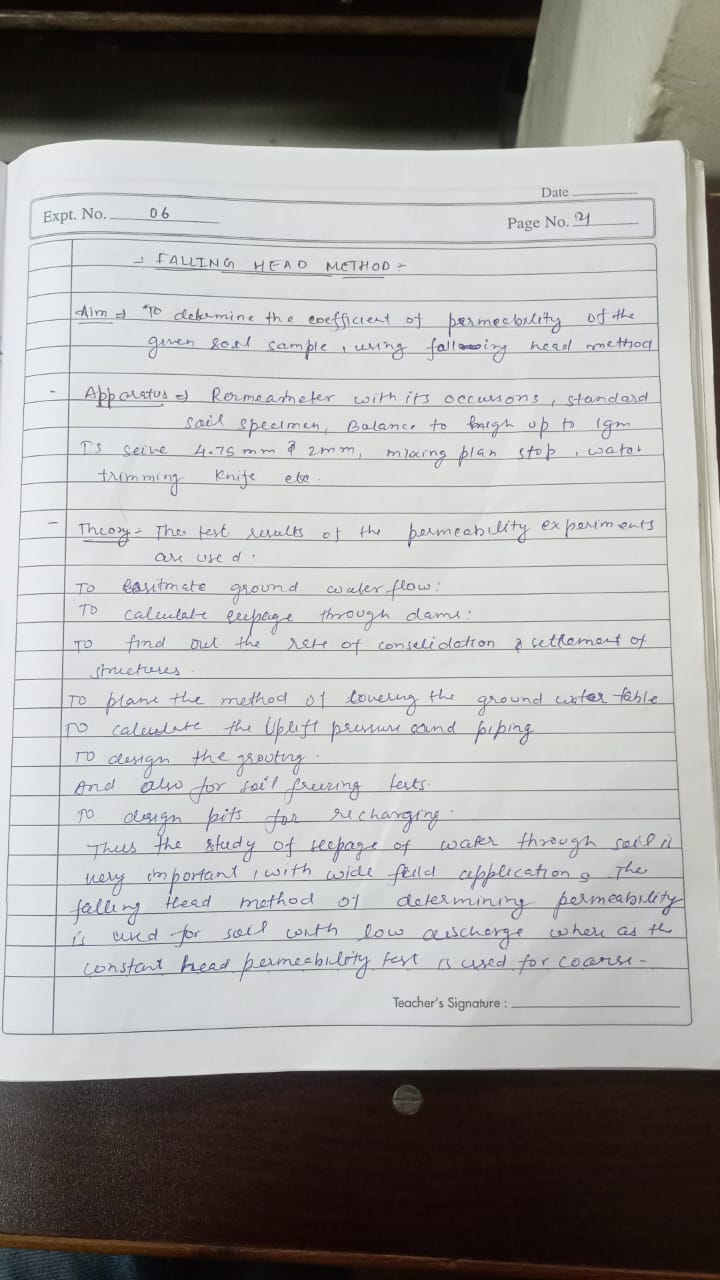 Date
Expt. No. 06
Page No. 21
→ FALLING HEAD METHOD :-
Aim ⇒ To determine the coefficient of permeability of the
given soil sample, using falling head method
- Apparatus ⇒ Permeameter with its occussons, standard
soil specimen, Balance to weigh up to 1gm
IS seive 4.75 mm & 2mm, mixing plan stop, water
trimming Knife etc.
- Theory :- The test results of the permeability experiments
are used.
To easitmate ground water flow:
TO calculate seepage through dams:
TO find out the rate of consolidation & settlement of
structures.
TO plane the method of lowering the ground water table
TO calculate the Uplift pressure and piping
TO design the grouting.
And also for soil freezing tests.
TO design pits for rechanging.
Thus the study of seepage of water through soil is
very important, with wide feild applications The
falling Head method of determining permeability
is used for soil with low discharge where as the
constant head permeability test is used for coarse-
Teacher's Signature :